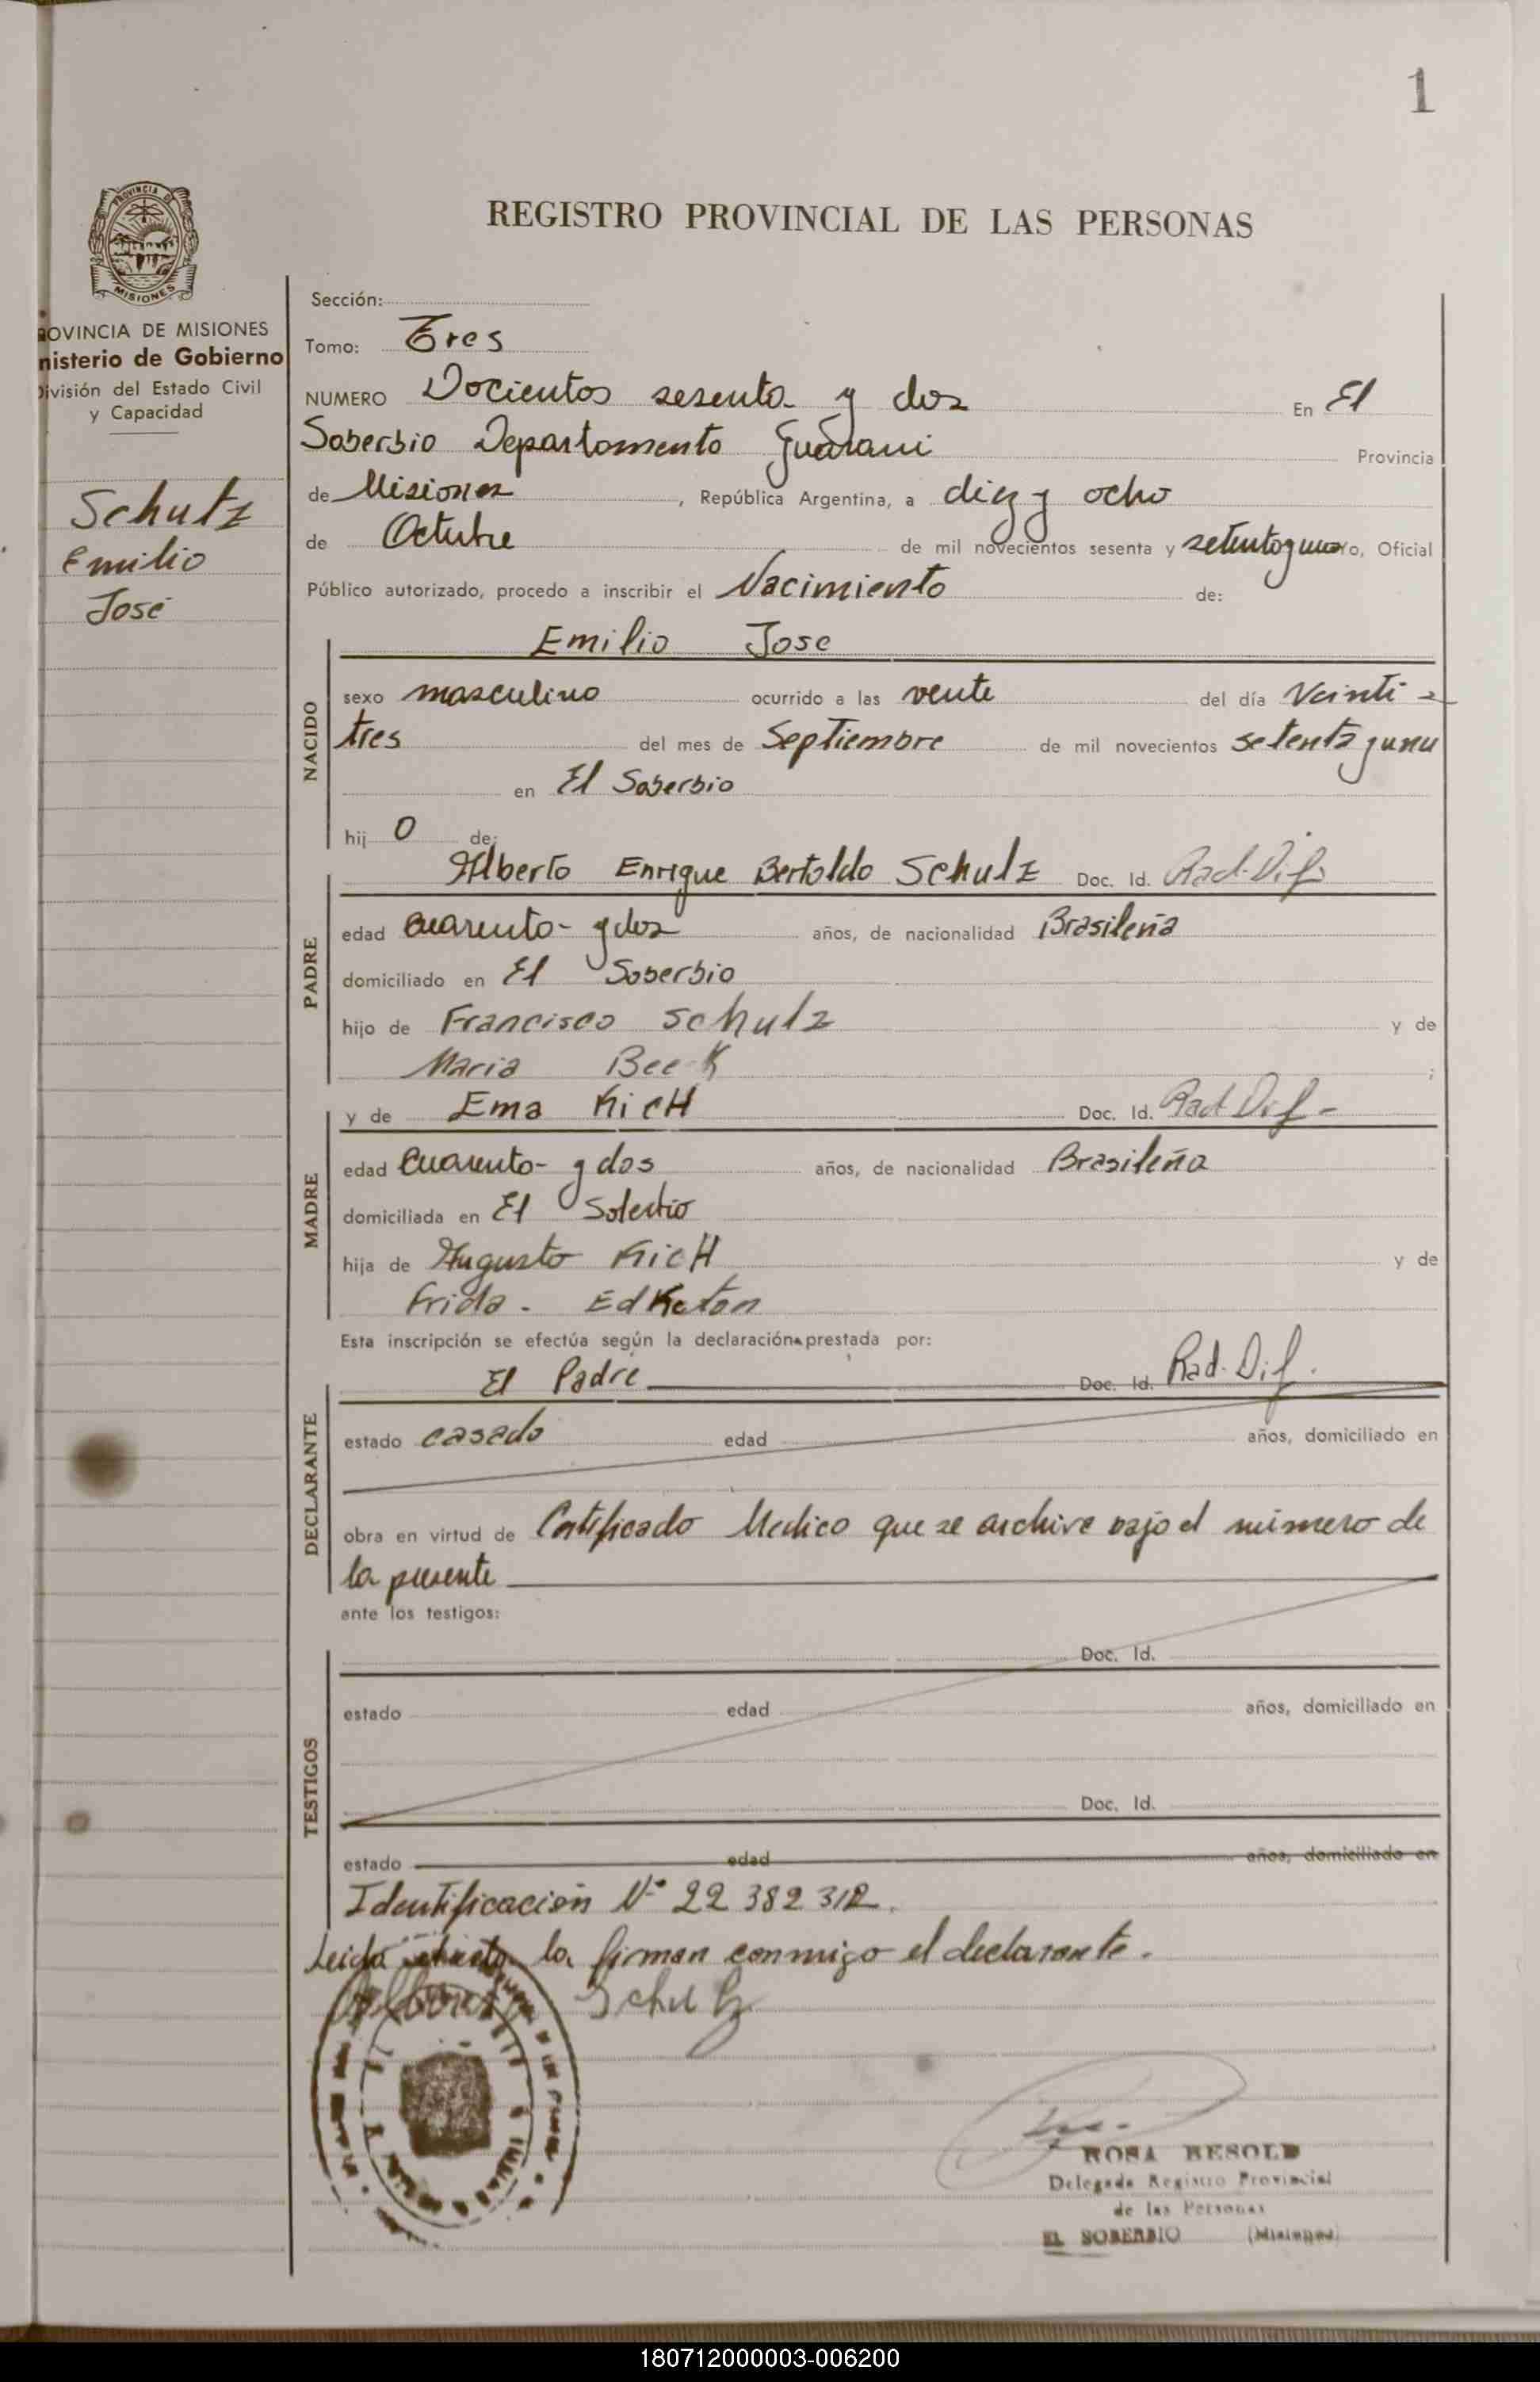 1
PROVINCIA DE
MISIONES
REGISTRO PROVINCIAL DE LAS PERSONAS
ROVINCIA DE MISIONES
nisterio de Gobierno
División del Estado Civil
y Capacidad
Schutz
Emilio
José
Sección:
Tomo: Tres
NUMERO Docientos sesenta y dos En El
Soberbio Departamento Guarani Provincia
de Misiones, República Argentina, a diez y ocho
de Octubre de mil novecientos sesenta y setenta y uno yo, Oficial
Público autorizado, procedo a inscribir el Nacimiento de:
Emilio Jose
NACIDO
sexo masculino ocurrido a las vente del día Veinti-
tres del mes de Septiembre de mil novecientos setenta y unu
en El Soberbio
hij o de:
PADRE
Alberto Enrique Bertoldo Schulz Doc. Id. Rad. Dif.
edad cuarenta y dos años, de nacionalidad Brasileña
domiciliado en El Soberbio
hijo de Francisco Schulz y de
Maria Beek;
MADRE
y de Ema KicH Doc. Id. Rad Dif-
edad Cuarenta y dos años, de nacionalidad Brasileña
domiciliada en El Soberbio
hija de Augusto KicH y de
Frida. EdKaton
Esta inscripción se efectúa según la declaración prestada por:
DECLARANTE
El Padre Doc. Id. Rad. Dif.
estado casado edad años, domiciliado en
obra en virtud de Certificado Medico que se archiva bajo el número de
la presente
ante los testigos:
TESTIGOS
Doc. Id.
estado edad años, domiciliado en
Doc. Id.
estado edad años, domiciliado en
Identificación Nº 22 382 312.
Leida el acta la firman conmigo el declarante.
Schulz
ROSA BESOLD
Delegada Registro Provincial
de las Personas
EL SOBERBIO (Misiones)
180712000003-006200